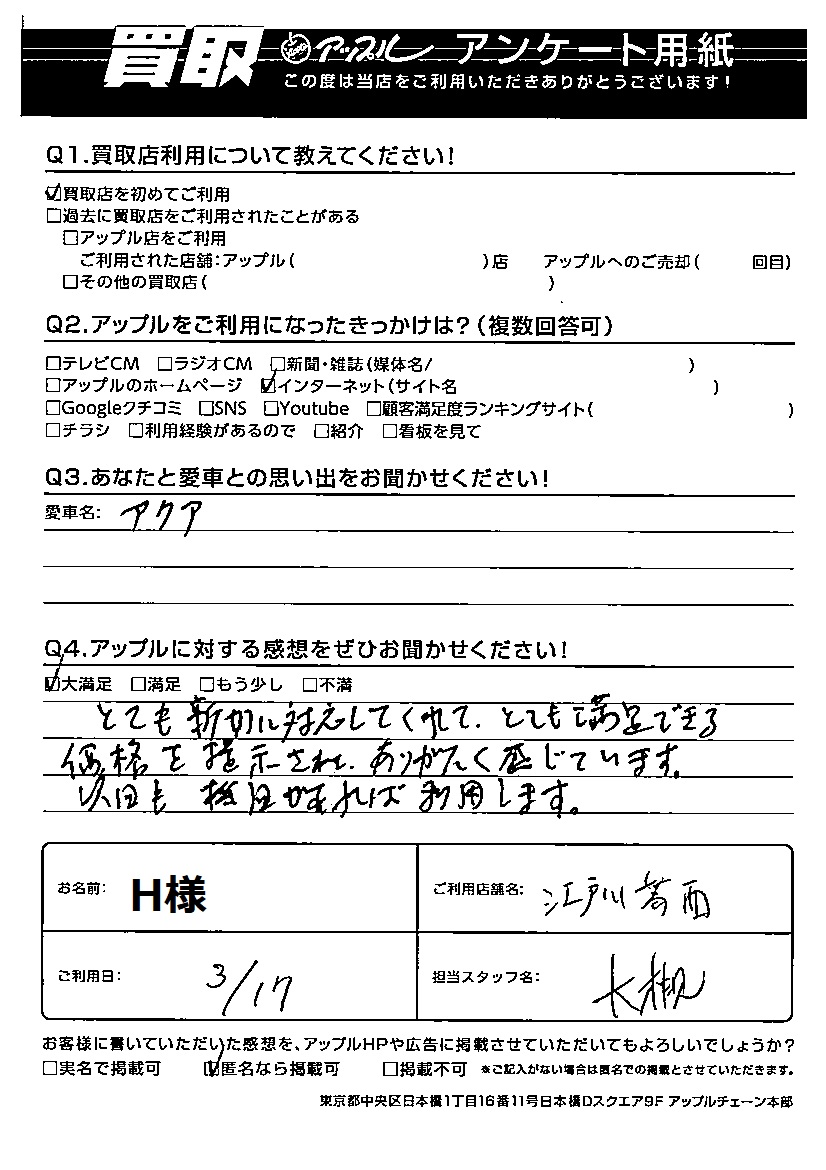 買取 アップル アンケート用紙
この度は当店をご利用いただきありがとうございます!
Q1.買取店利用について教えてください!
☑買取店を初めてご利用
□過去に買取店をご利用されたことがある
□アップル店をご利用
ご利用された店舗:アップル( )店 アップルへのご売却( 回目)
□その他の買取店( )
Q2.アップルをご利用になったきっかけは?(複数回答可)
□テレビCM □ラジオCM □新聞・雑誌(媒体名/ )
□アップルのホームページ ☑インターネット(サイト名 )
□Googleクチコミ □SNS □Youtube □顧客満足度ランキングサイト( )
□チラシ □利用経験があるので □紹介 □看板を見て
Q3.あなたと愛車との思い出をお聞かせください!
愛車名: アクア
Q4.アップルに対する感想をぜひお聞かせください!
☑大満足 □満足 □もう少し □不満
とても親切に対応してくれて、とても満足できる
価格を提示され、ありがたく感じています。
次回も機会があれば利用します。
お名前: H様 ご利用店舗名: 江戸川葛西
ご利用日: 3/17 担当スタッフ名: 大槻
お客様に書いていただいた感想を、アップルHPや広告に掲載させていただいてもよろしいでしょうか?
□実名で掲載可 ☑匿名なら掲載可 □掲載不可 ※ご記入がない場合は匿名での掲載とさせていただきます。
東京都中央区日本橋1丁目16番11号日本橋Dスクエア9F アップルチェーン本部